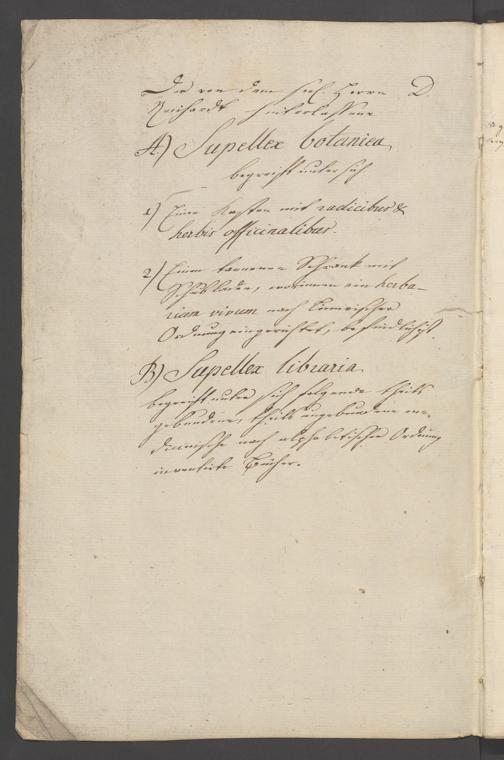 Die von dem seel. Herrn D.
Reichardt hinterlassene
A) Supellex botanica
begreift unter sich
1) Einen Kasten mit radicibus &
herbis officinalibus.
2) Einen tannenen Schrank mit
Schubladen, worinnen ein herba-
rium vivum nach Linneischer
Ordnung eingerichtet, befindlich ist.
B) Supellex libraria
begreift unter sich folgende theils
gebundene, theils ungebundene me-
dicinische nach alphabetischer Ordnung
inventirte Bücher.